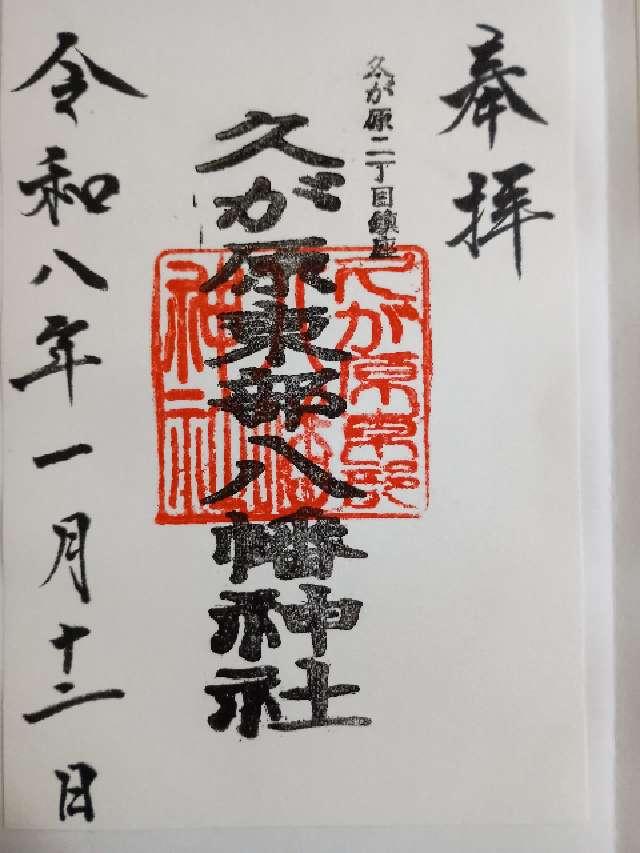 奉拝
久が原二丁目鎮座
久が原東部八幡神社
久が原東部
八幡
神社
令和八年一月十二日